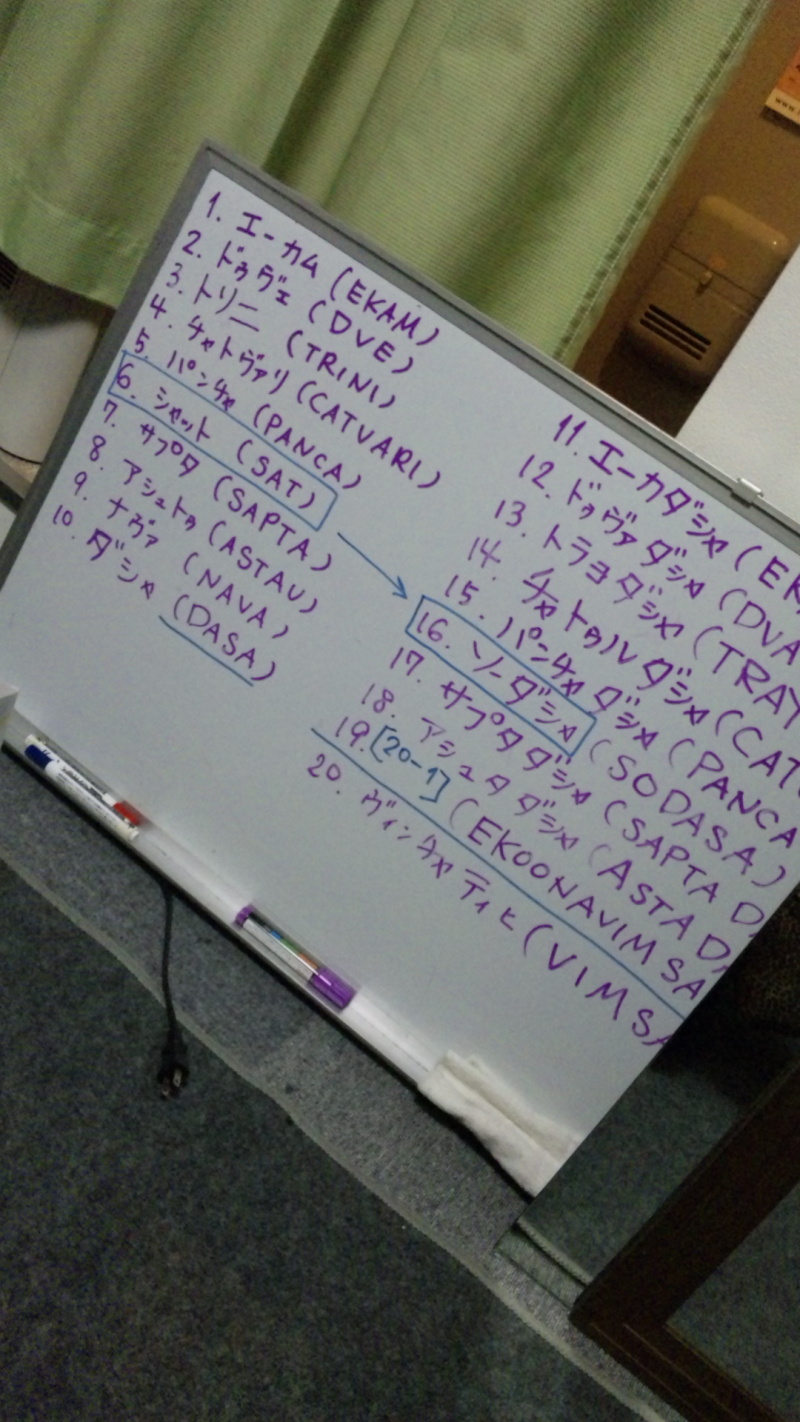 1. エーカム (EKAM)
2. ドゥヴェ (DVE)
3. トリニ (TRINI)
4. チャトヴァリ (CATVARI)
5. パンチャ (PANCA)
6. シャット (SAT)
7. サプタ (SAPTA)
8. アシュトゥ (ASTAU)
9. ナヴァ (NAVA)
10. ダシャ (DASA)
11. エーカダシャ (EK
12. ドゥヴァダシャ (DVA
13. トラヨダシャ (TRAY
14. チャトゥルダシャ (CAT
15. パンチャダシャ (PANCA
16. ソーダシャ (SODASA)
17. サプタダシャ (SAPTA D
18. アシュタダシャ (ASTA DA
19. [20-1] (EKOONAVIMSA
20. ヴィンチャティヒ (VIMSA